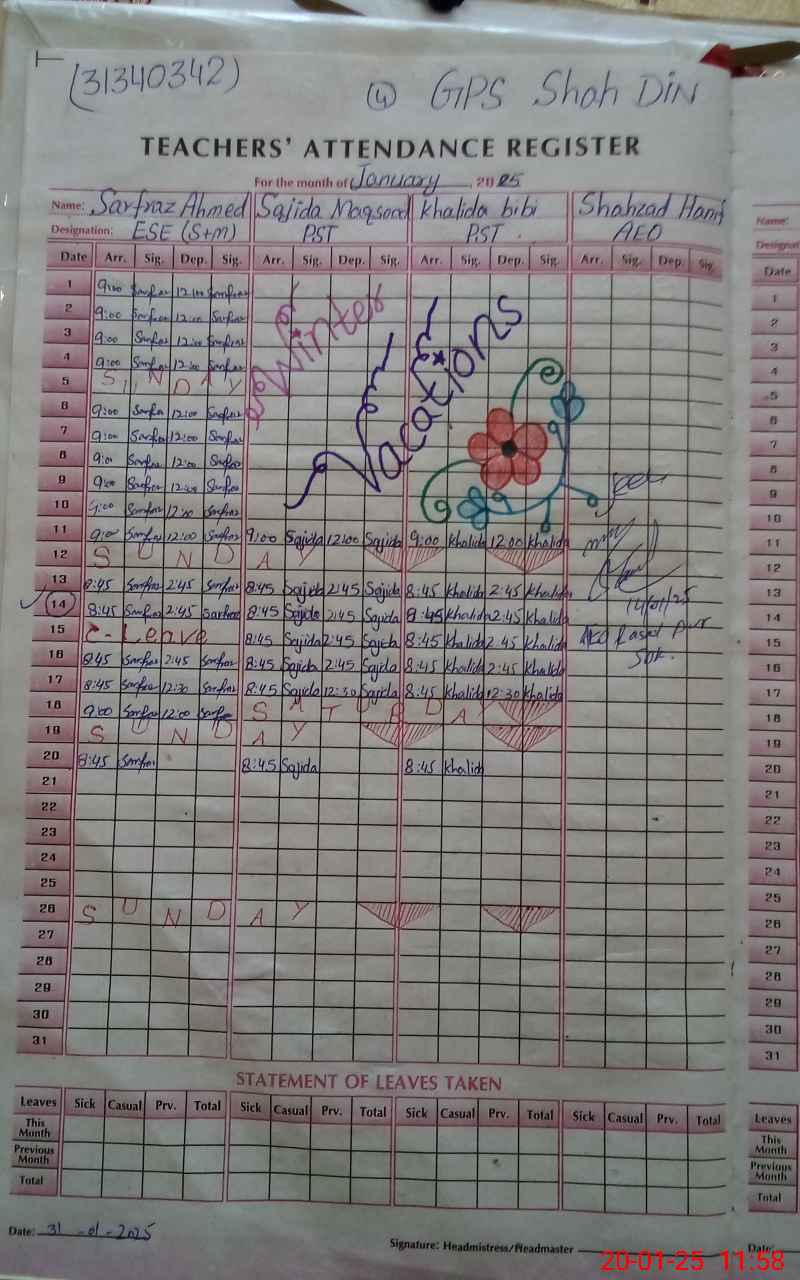 (31340342) (4) GPS Shah DIN
TEACHERS' ATTENDANCE REGISTER
For the month of January, 2025
Name: Sarfraz Ahmed Sajida Maqsood Khalida bibi Shahzad Hanif
Designation: ESE (S+m) PST PST. AEO
Date Arr. Sig. Dep. Sig. Arr. Sig. Dep. Sig. Arr. Sig. Dep. Sig. Arr. Sig. Dep. Sig.
Winter
Vacations
1 9:00 Sarfraz 12:00 Sarfraz
2 9:00 Sarfraz 12:00 Sarfraz
3 9:00 Sarfraz 12:00 Sarfraz
4 9:00 Sarfraz 12:00 Sarfraz
5 SUNDAY
6 9:00 Sarfraz 12:00 Sarfraz
7 9:00 Sarfraz 12:00 Sarfraz
8 9:00 Sarfraz 12:00 Sarfraz
9 9:00 Sarfraz 12:00 Sarfraz
10 9:00 Sarfraz 12:00 Sarfraz
11 9:00 Sarfraz 12:00 Sarfraz 9:00 Sajida 12:00 Sajida 9:00 Khalida 12:00 Khalida
12 SUNDAY
13 8:45 Sarfraz 2:45 Sarfraz 8:45 Sajida 2:45 Sajida 8:45 Khalida 2:45 Khalida
14 8:45 Sarfraz 2:45 Sarfraz 8:45 Sajida 2:45 Sajida 8:45 Khalida 2:45 Khalida 14/01/25
15 C-Leave 8:45 Sajida 2:45 Sajida 8:45 Khalida 2:45 Khalida AEO
16 8:45 Sarfraz 2:45 Sarfraz 8:45 Sajida 2:45 Sajida 8:45 Khalida 2:45 Khalida
17 8:45 Sarfraz 12:30 Sarfraz 8:45 Sajida 12:30 Sajida 8:45 Khalida 12:30 Khalida
18 9:00 Sarfraz 12:00 Sarfraz SATURDAY
19 SUNDAY
20 8:45 Sarfraz 8:45 Sajida 8:45 Khalida
21
22
23
24
25
26 SUNDAY
27
28
29
30
31
STATEMENT OF LEAVES TAKEN
Leaves Sick Casual Prv. Total Sick Casual Prv. Total Sick Casual Prv. Total Sick Casual Prv. Total
This Month
Previous Month
Total
Date: 31-01-2025
Signature: Headmistress/Headmaster
Name:
Date
1
2
3
4
5
6
7
8
9
10
11
12
13
14
15
16
17
18
19
20
21
22
23
24
25
26
27
28
29
30
31
Leaves
This Month
Previous Month
Total
Date:
20-01-25 11:58